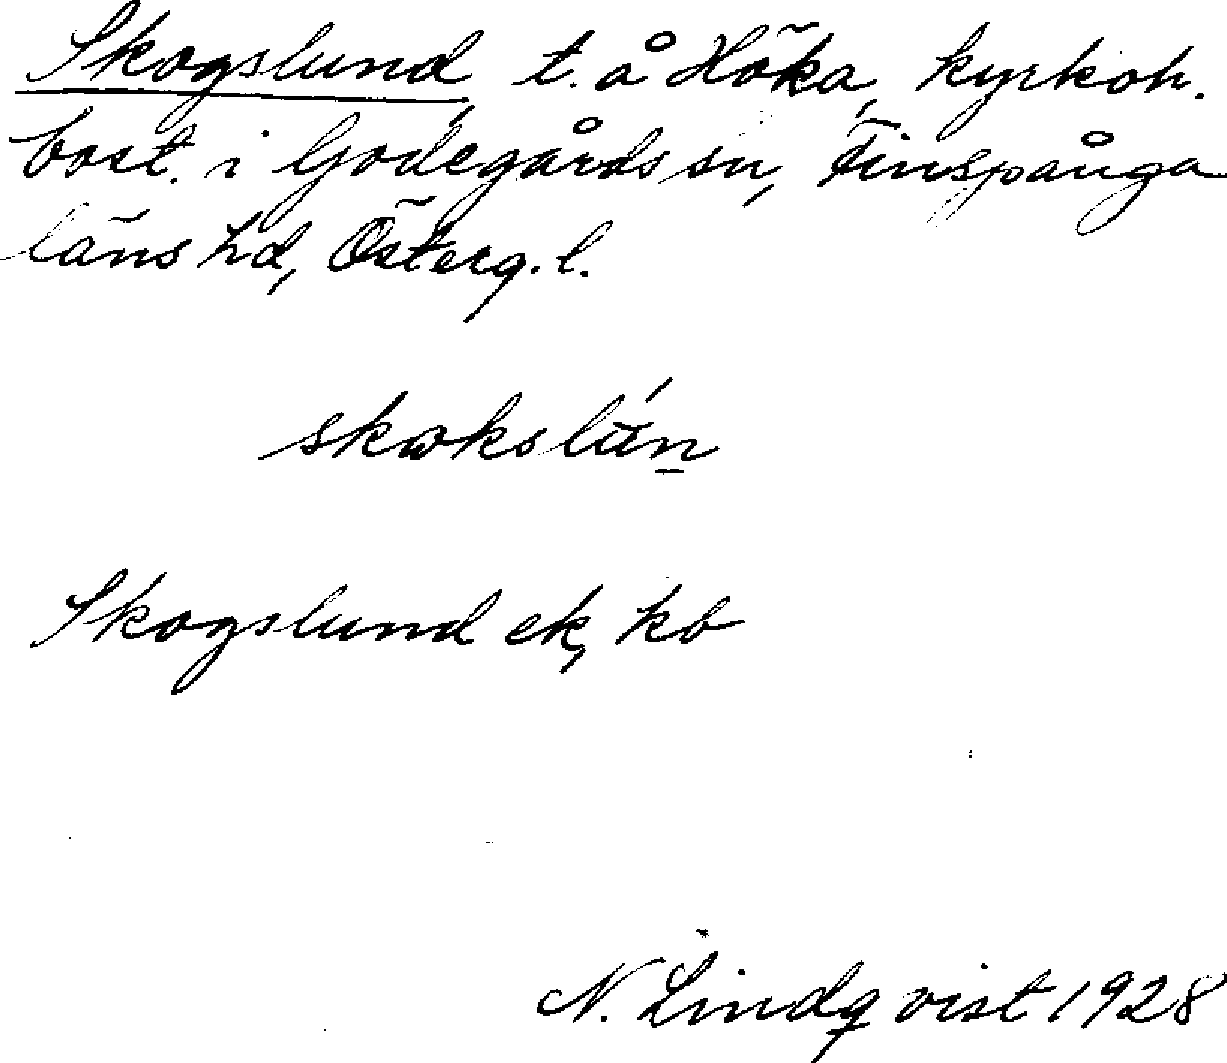 Skogslund, t. å Höka, kyrkoh.
bost. i Godegårds sn, Finspånga
läns hd, Österg. l.
skωkslún̲
Skogslund ek, kb
N. Lindqvist 1928